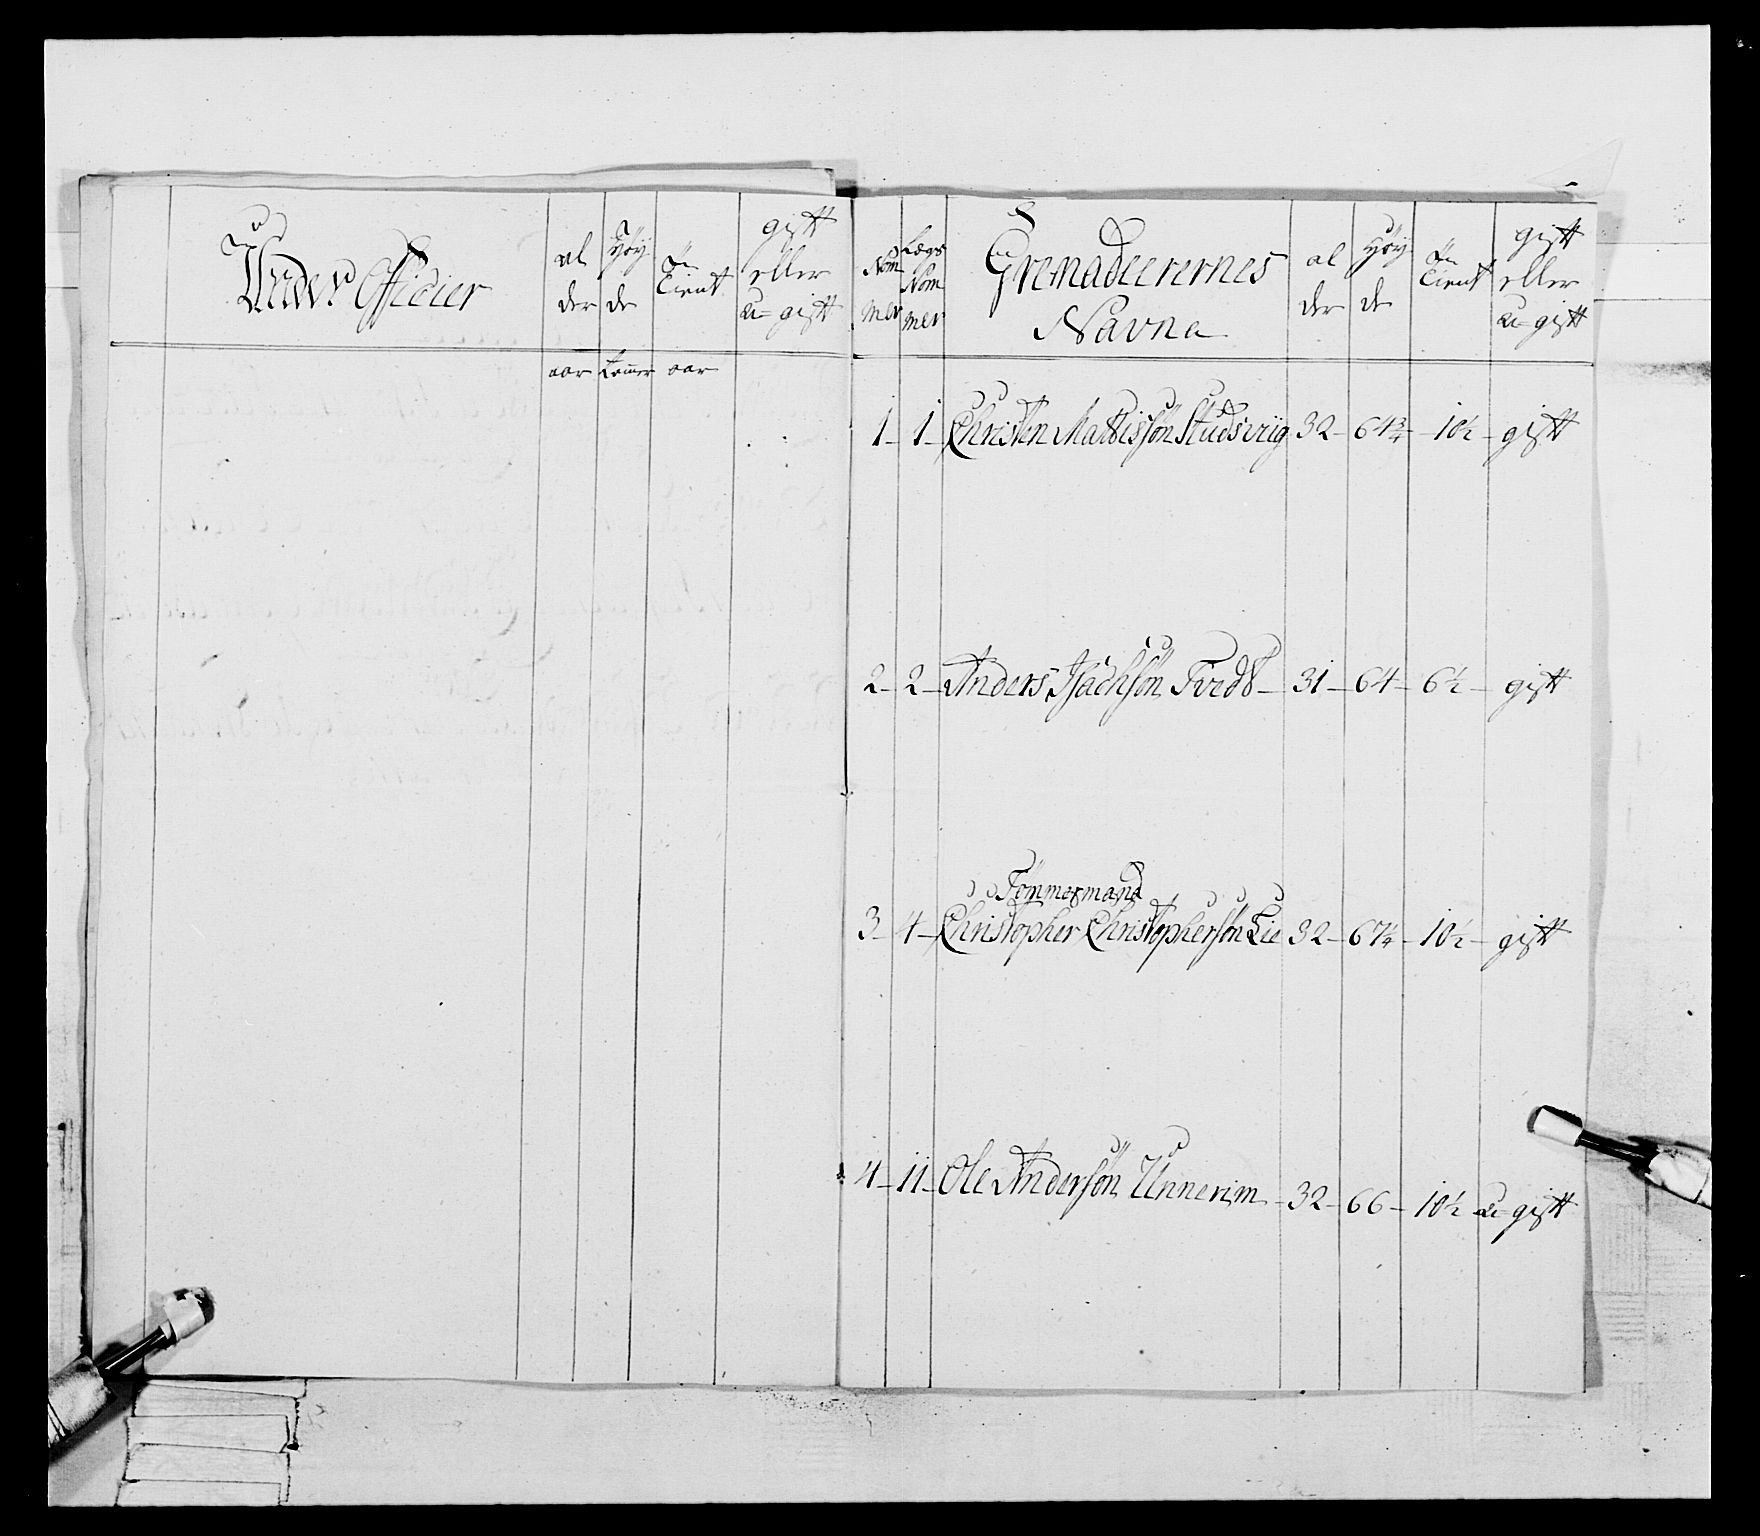 Under Officier
al der
Höy de
tient
gift eller u=gift
aar tommer aar
Nom mer
Lægs Nom mer
Grenadeerernes Navne
al der
Höy de
tient
gift eller u=gift
1 - 1 - Christen Mattisön Studsviig 32 - 64 3/4 - 10 1/2 - gift
2 - 2 - Anders Isachsön Tvedt - 31 - 64 - 6 1/2 - gift
Tömmermand
3 - 4 - Christopher Christophersön Lie 32 - 67 1/4 - 10 1/2 - gift
4 - 11 - Ole Andersön Unnerim - 32 - 66 - 10 1/2 u=gift